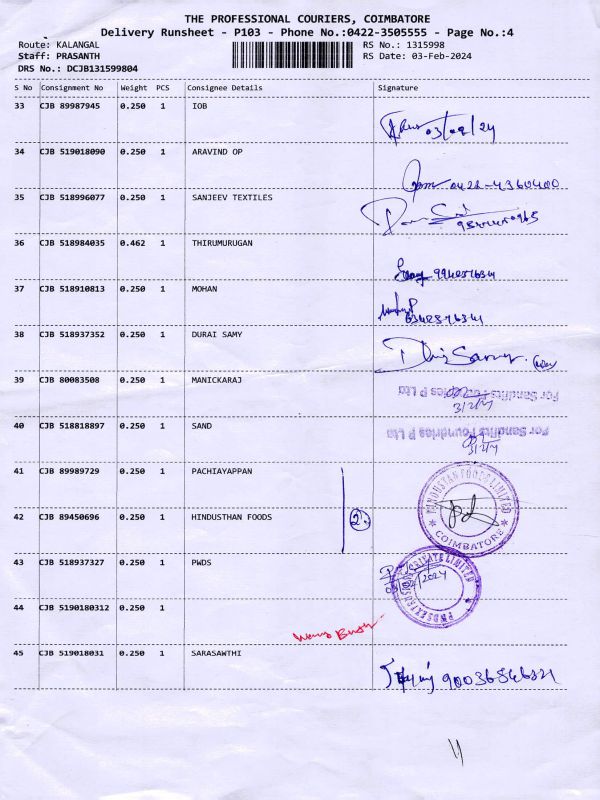 THE PROFESSIONAL COURIERS, COIMBATORE
Delivery Runsheet - P103 - Phone No.:0422-3505555 - Page No.:4
Route: KALANGAL RS No.: 1315998
Staff: PRASANTH RS Date: 03-Feb-2024
DRS No.: DCJB131599804
S No Consignment No Weight PCS Consignee Details Signature
33 CJB 89987945 0.250 1 IOB
03/02/24
34 CJB 519018090 0.250 1 ARAVIND OP
0422-4360400
35 CJB 518996077 0.250 1 SANJEEV TEXTILES
36 CJB 518984035 0.462 1 THIRUMURUGAN
37 CJB 518910813 0.250 1 MOHAN
38 CJB 518937352 0.250 1 DURAI SAMY
39 CJB 80083508 0.250 1 MANICKARAJ
For Sandfits Foundries P Ltd
3/2/24
40 CJB 518818897 0.250 1 SAND
For Sandfits Foundries P Ltd
3/2/24
41 CJB 89989729 0.250 1 PACHIAYAPPAN
HINDUSTAN FOODS LIMITED
COIMBATORE
42 CJB 89450696 0.250 1 HINDUSTHAN FOODS 2
43 CJB 518937327 0.250 1 PWDS
PRIVATE LIMITED
44 CJB 5190180312 0.250 1
45 CJB 519018031 0.250 1 SARASAWTHI